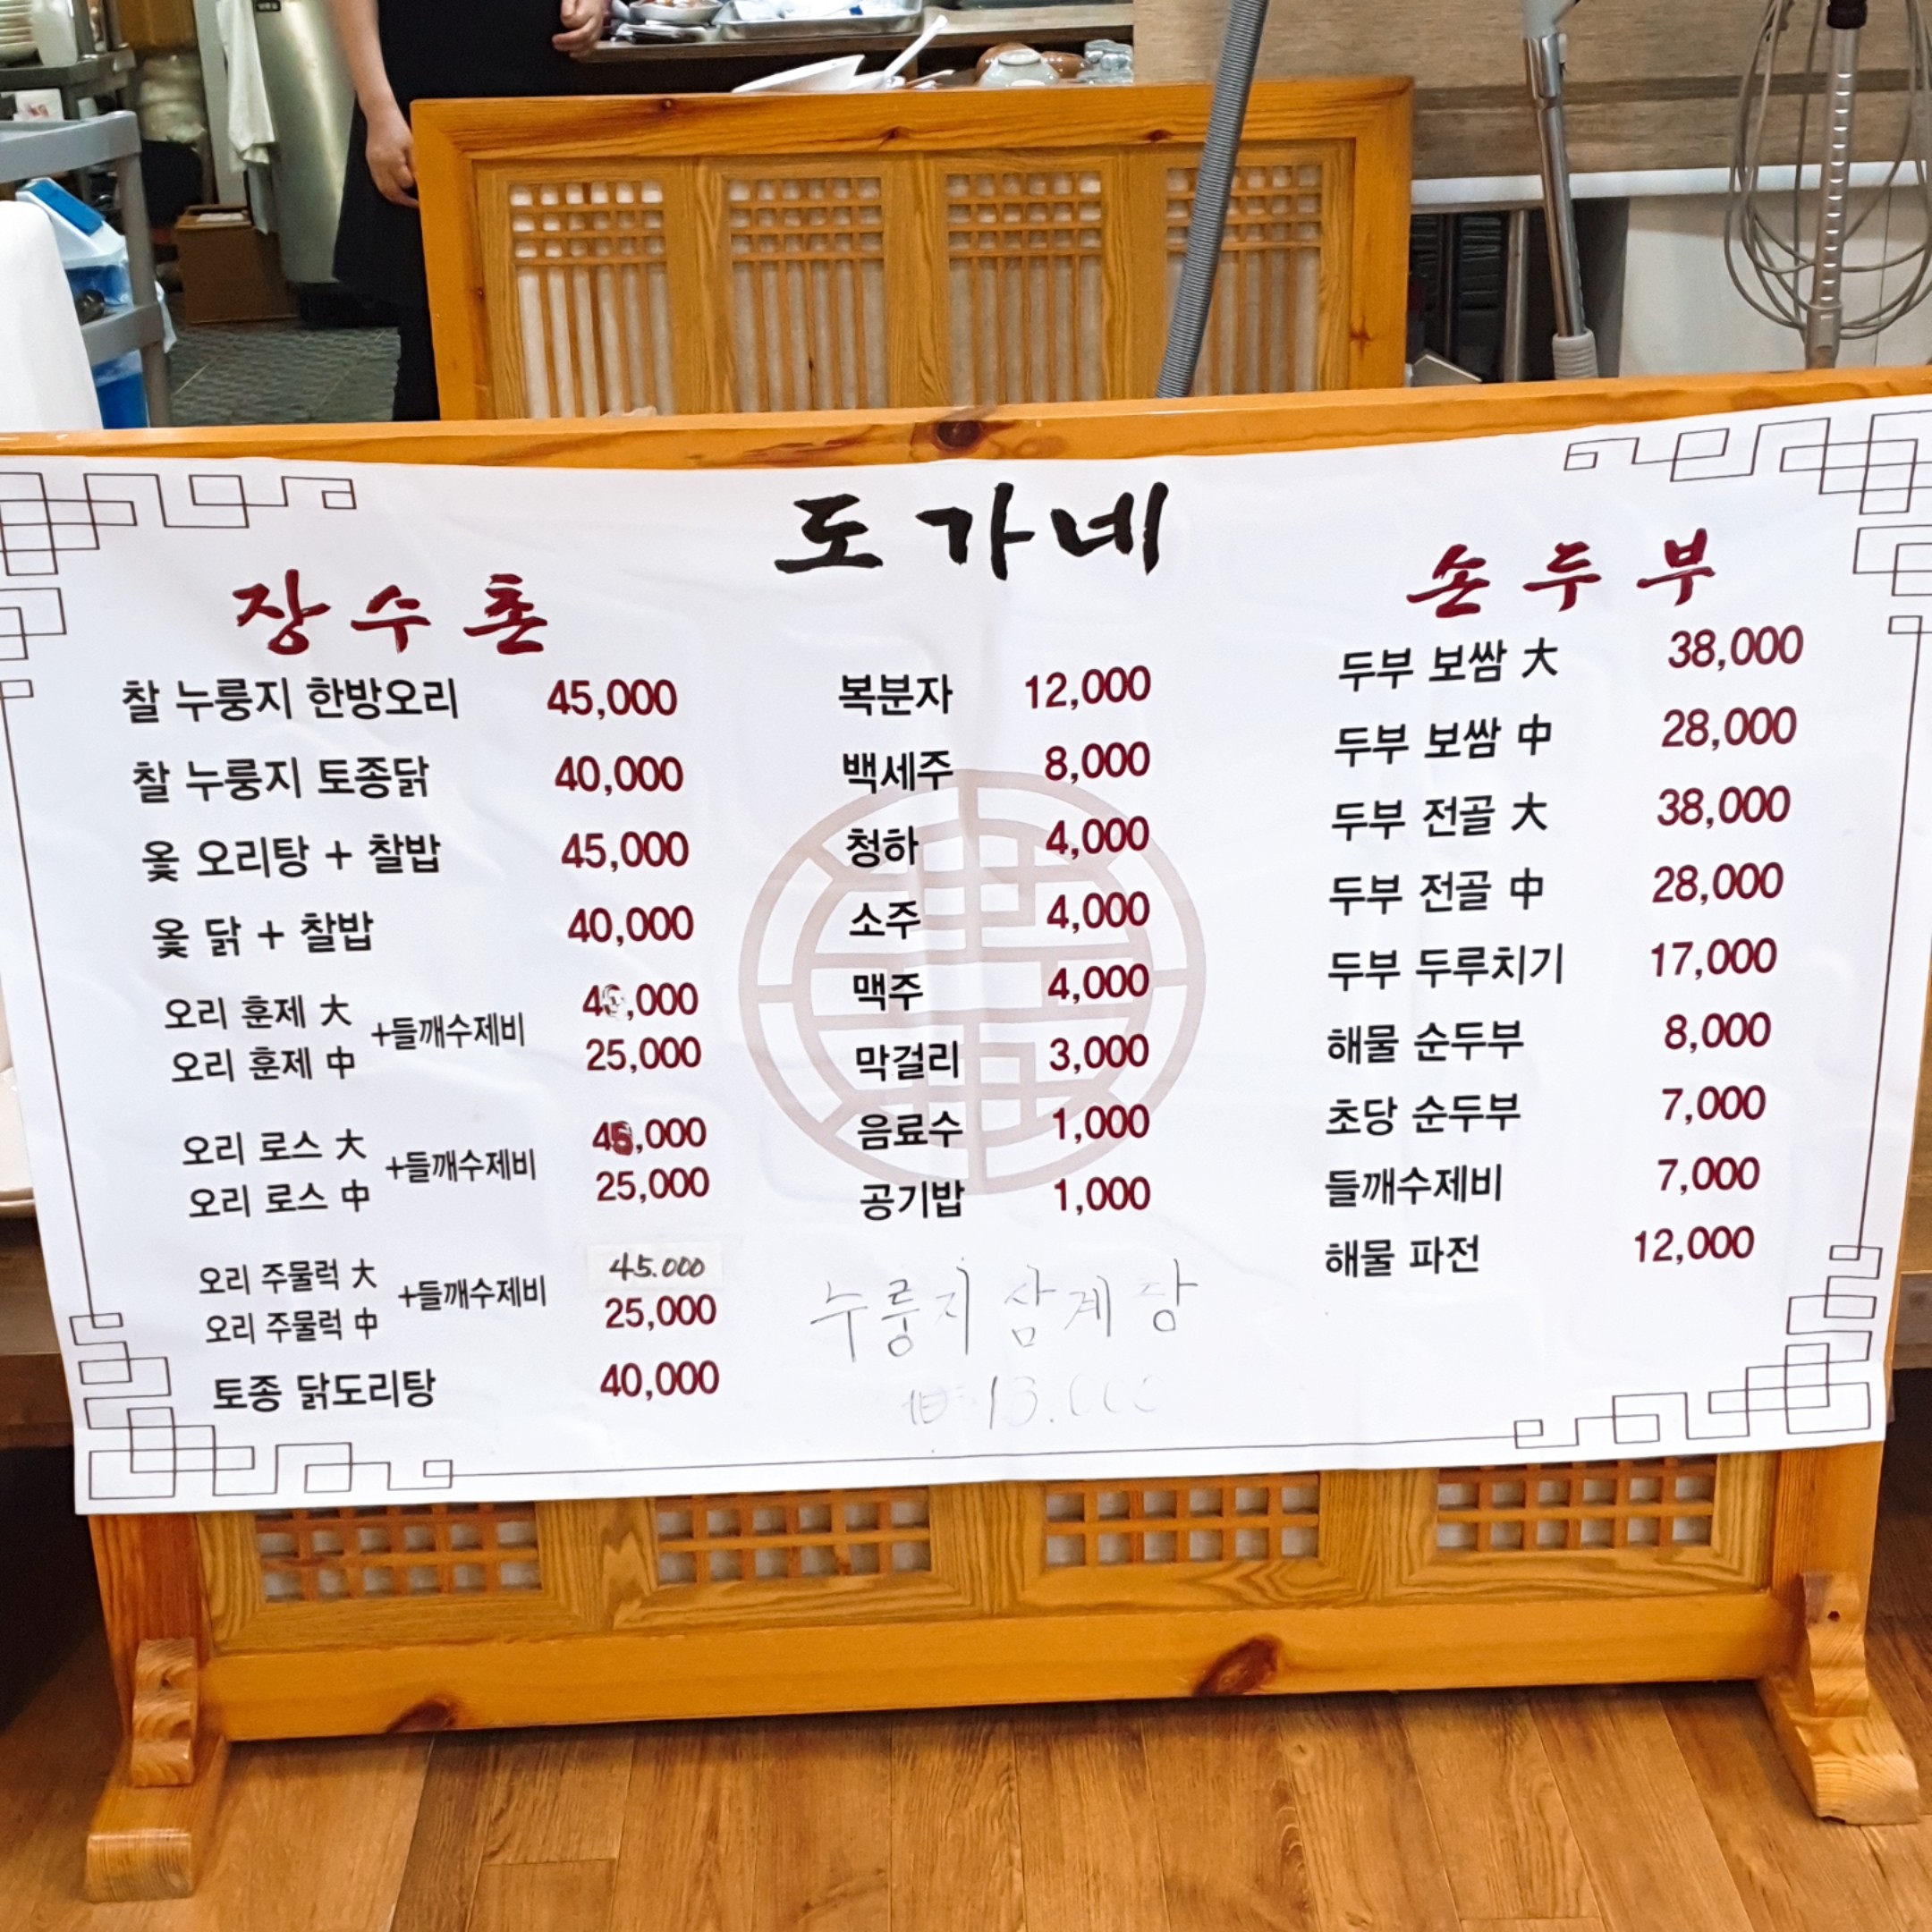 도가네
장수촌
찰 누룽지 한방오리 45,000
찰 누룽지 토종닭 40,000
옻 오리탕 + 찰밥 45,000
옻 닭 + 찰밥 40,000
오리 훈제 大
오리 훈제 中 25,000
+들깨수제비
오리 로스 大 45,000
오리 로스 中 25,000
+들깨수제비
오리 주물럭 大 45.000
오리 주물럭 中 25,000
+들깨수제비
토종 닭도리탕 40,000
복분자 12,000
백세주 8,000
청하 4,000
소주 4,000
맥주 4,000
막걸리 3,000
음료수 1,000
공기밥 1,000
누룽지 삼계탕
₩ 13.000
손두부
두부 보쌈 大 38,000
두부 보쌈 中 28,000
두부 전골 大 38,000
두부 전골 中 28,000
두부 두루치기 17,000
해물 순두부 8,000
초당 순두부 7,000
들깨수제비 7,000
해물 파전 12,000